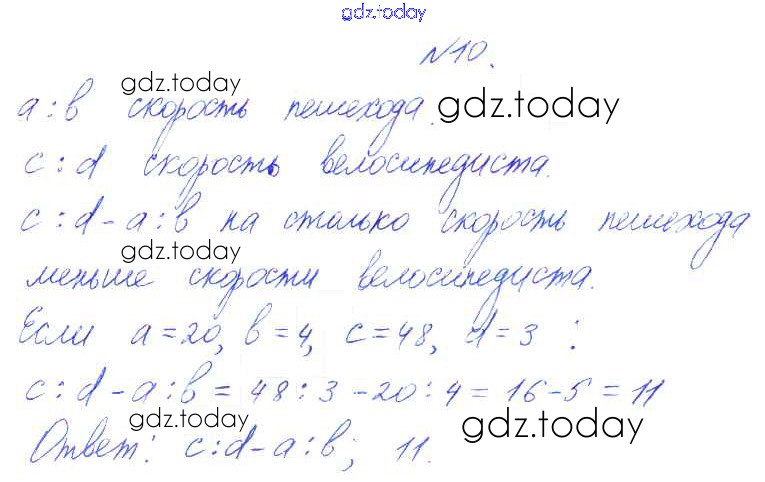 gdz.today
№10.
gdz.today
a:b скорость пешехода.
gdz.today
c:d скорость велосипедиста.
c:d-a:b на столько скорость пешехода
gdz.today
меньше скорости велосипедиста.
Если a=20, b=4, c=48, d=3 :
c:d-a:b=48:3-20:4=16-5=11
gdz.today
gdz.today
Ответ: c:d-a:b; 11.